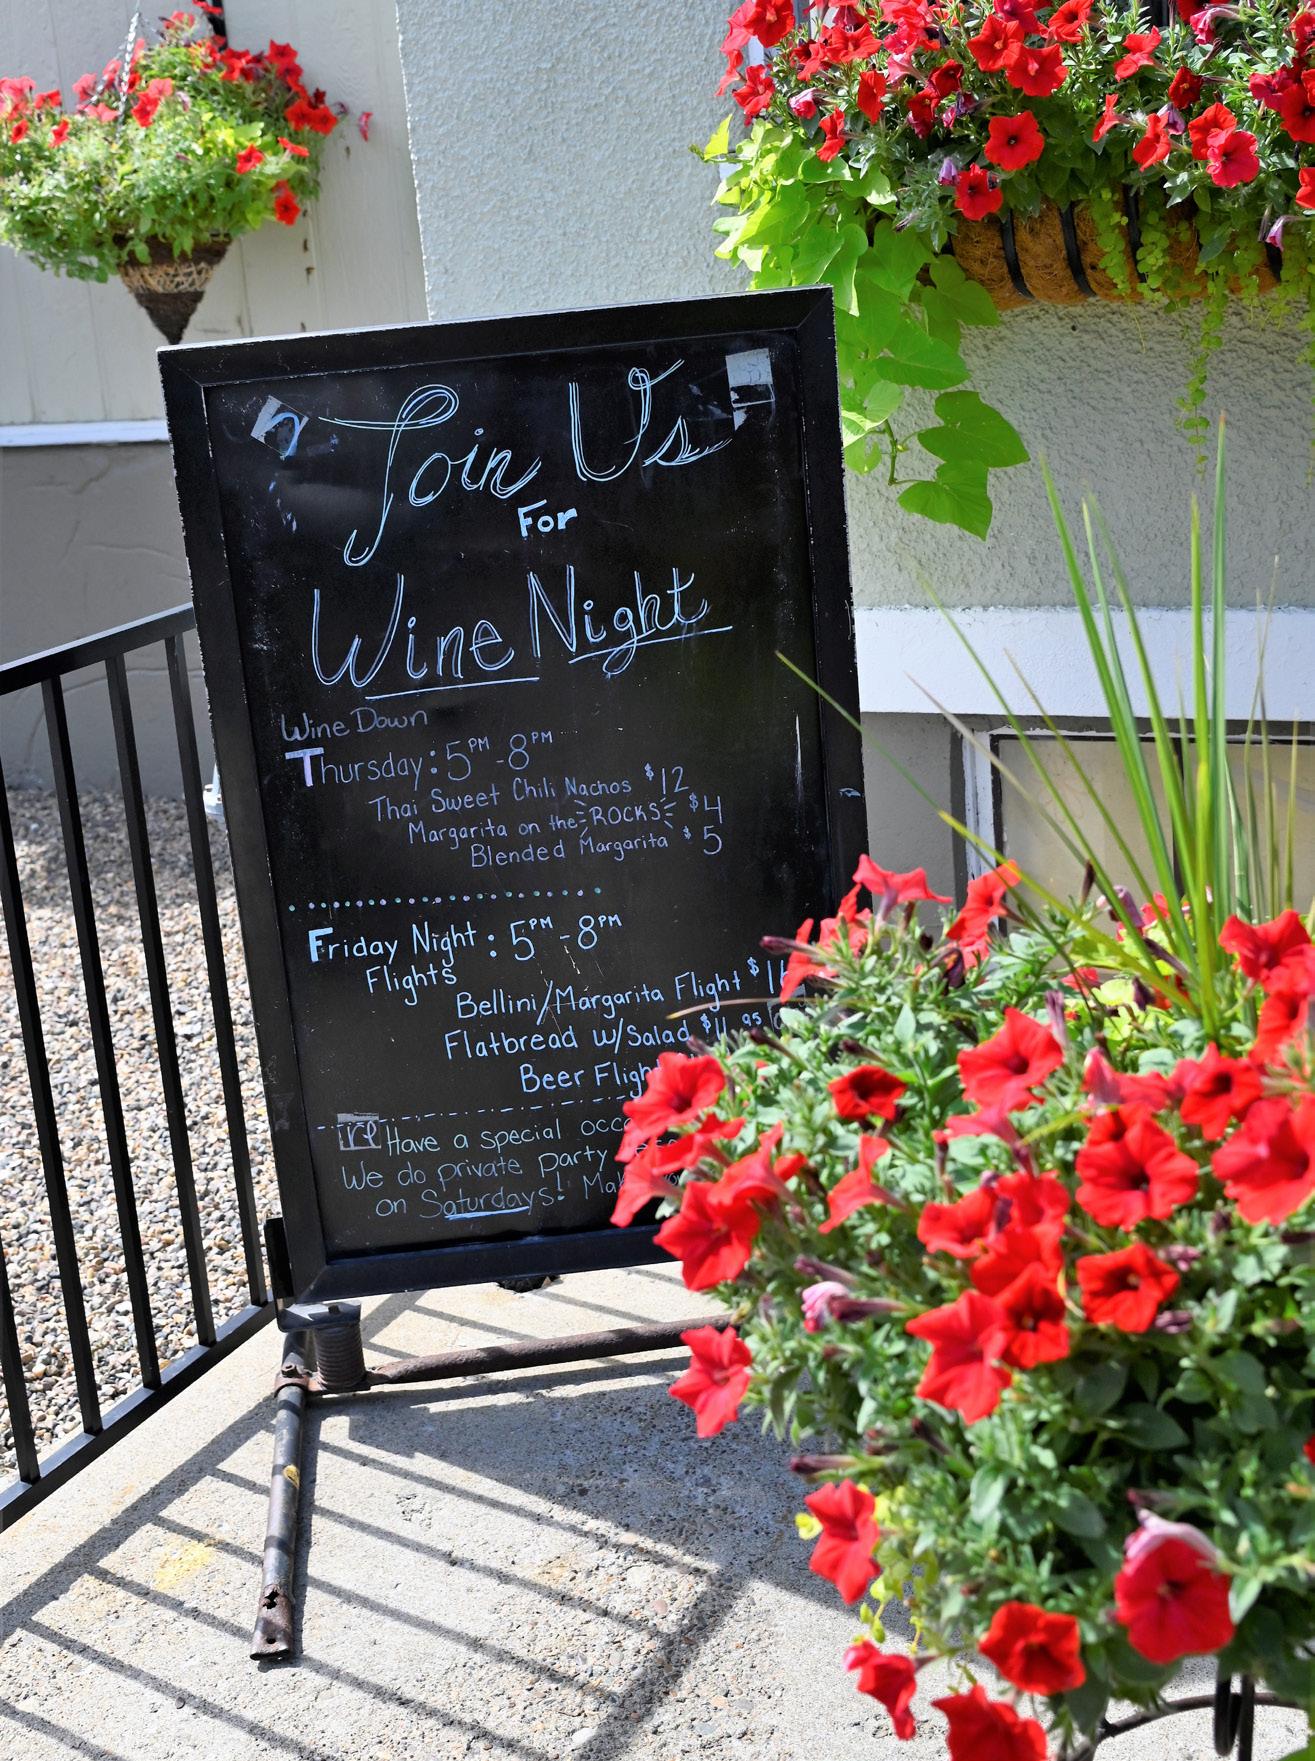 Join Us
For
Wine Night
Wine Down
Thursday: 5PM-8PM
Thai Sweet Chili Nachos $12
Margarita on the ROCKS $4
Blended Margarita $5
Friday Night: 5PM-8PM
Flights
Bellini/Margarita Flight
Flatbread w/Salad $11.95
Beer
Have a special
We do private party
on Saturdays!